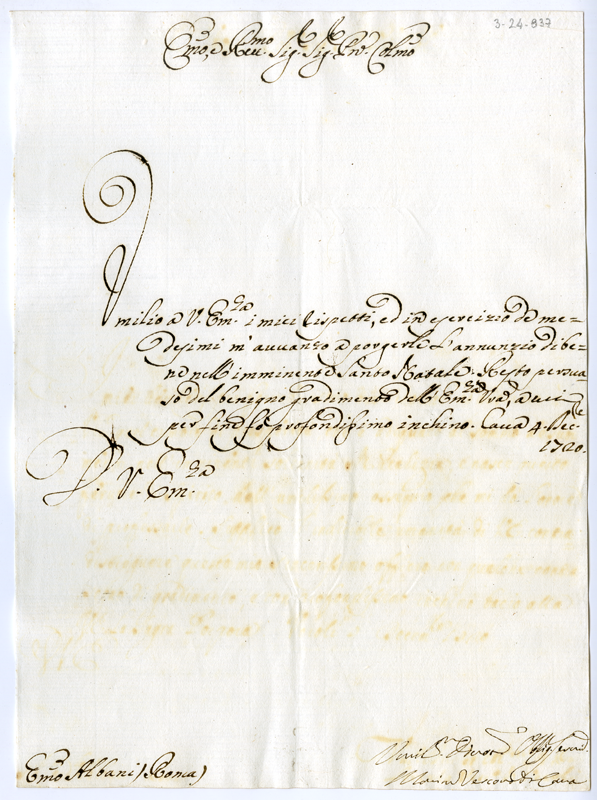 3-24-837
Em̃o, e Rev.mo Sig.r Sig.r Pñe Colmõ
Umilio a V. Em.za i miei rispetti, ed in esercizio de me-
desimi m'avvanzo a porgerle l'annunzio di be-
ne nell'imminente Santo Natale. Resto persua-
so del benigno gradimento dell'Em.za Vrã, a cui
per fine fo profondissimo inchino. Cava 4 Dec.
1720.
D. V. Em.za
Em̃o Albani (Roma)
Umil.o Devot.o Obligat.
Vescovo di Cava